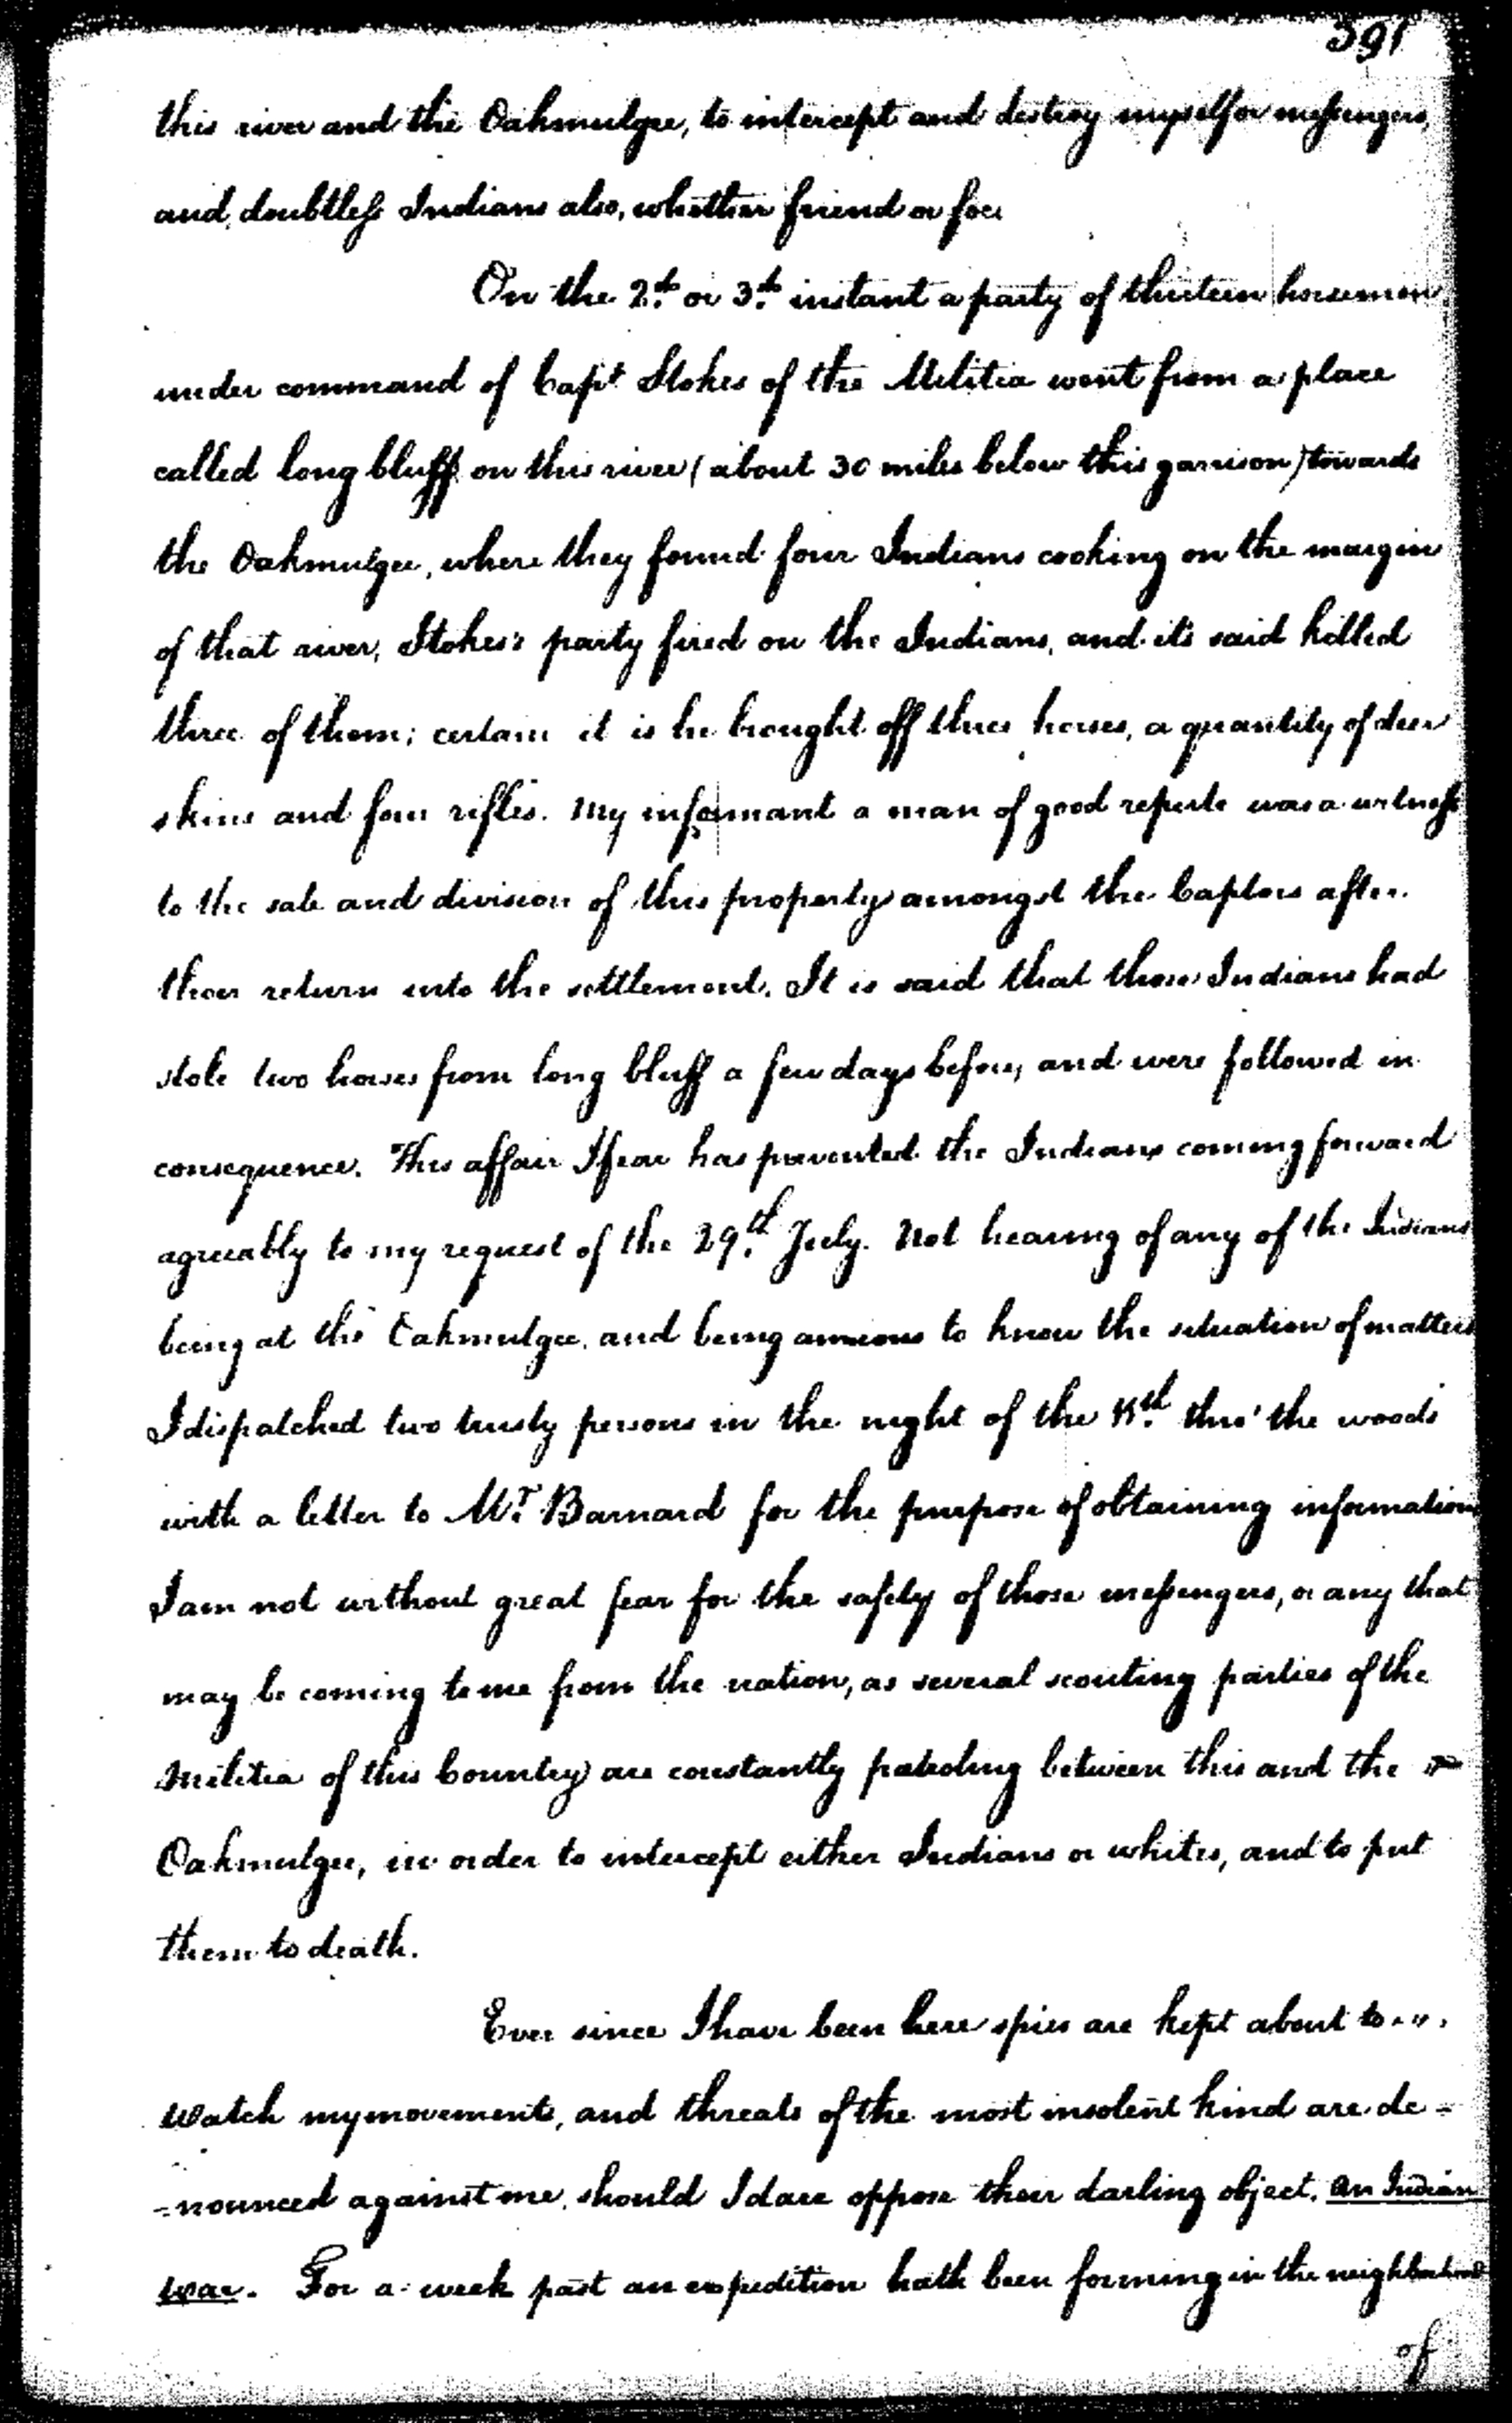 391
this river and the Oakmulgee, to intercept and destroy myself or messengers,
and, doubtless Indians also, whether friend or foe.
On the 2.d or 3.d instant a party of thirteen horsemen,
under command of Capt. Stokes of the Militia went from a place
called long bluff on this river (about 30 miles below this garrison) towards
the Oakmulgee, where they found four Indians cooking on the margin
of that river, Stokes's party fired on the Indians, and it's said killed
three of them; certain it is he brought off three horses, a quantity of deer
skins and four rifles. My informant a man of good repute was a witness
to the sale and division of this property amongst the Captors after
their return into the settlement. It is said that those Indians had
stole two horses from long bluff a few days before, and were followed in
consequence. This affair I fear has prevented the Indians coming forward
agreeably to my request of the 29.th July. Not hearing of any of the Indians
being at the Oakmulgee, and being anxious to know the situation of matters
I dispatched two trusty persons in the night of the th thro' the woods
with a letter to Mr. Barnard for the purpose of obtaining information,
I am not without great fear for the safety of those messengers, or any that
may be coming to me from the nation, as several scouting parties of the
Militia of this Country are constantly patroling between this and the
Oakmulgee, in order to intercept either Indians or whites, and to put
them to death.
Ever since I have been here spies are kept about to
Watch my movements, and threats of the most insolent kind are de-
-nounced against me, should I dare oppose their darling object, an Indian
war. For a week past an expedition hath been forming in the neighborhood
of